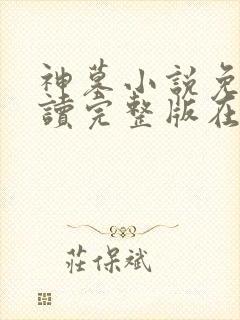 神墓小說免
讀完整版在
莊保斌